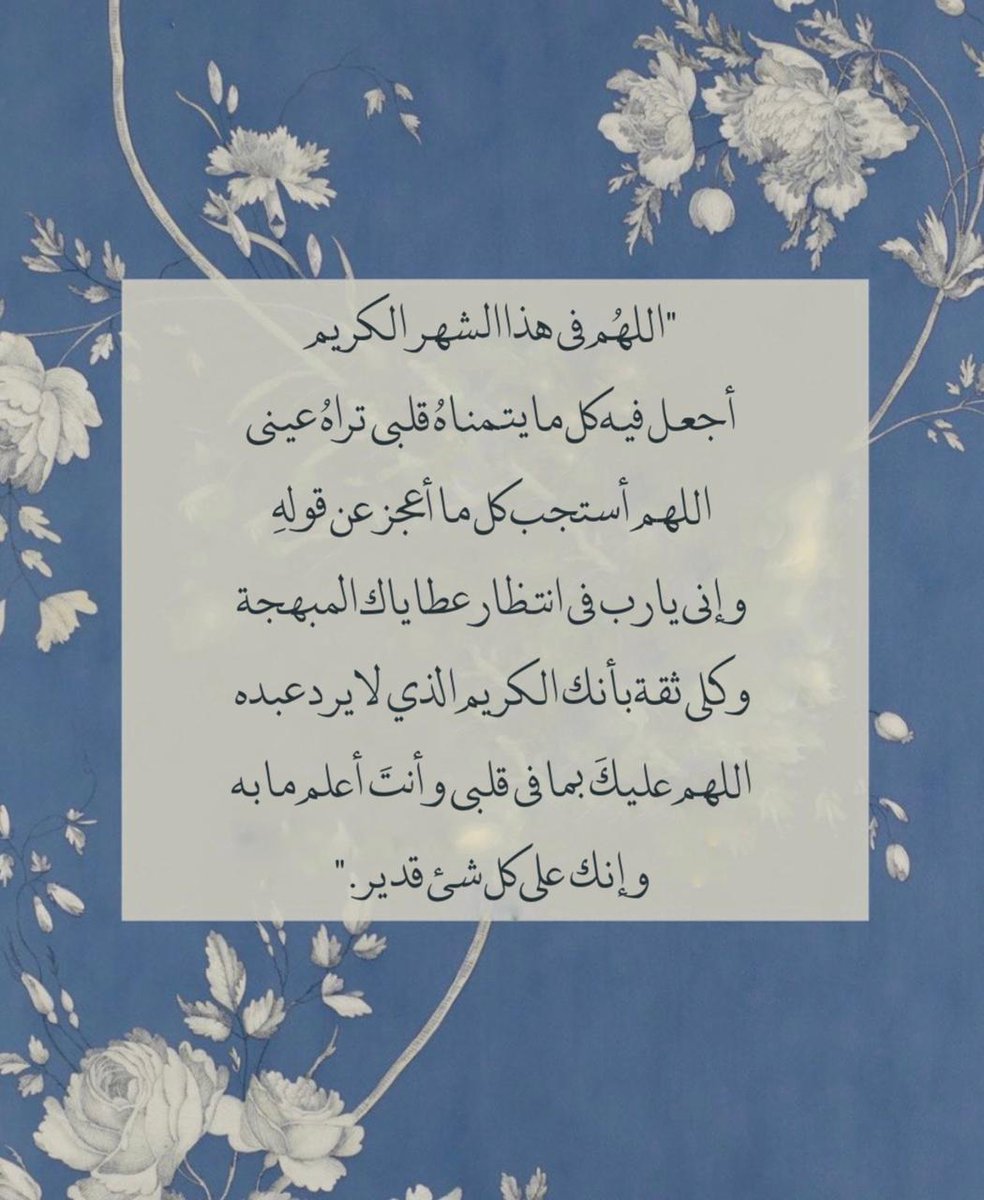 "اللهُم فى هذا الشهر الكريم
أجعل فيه كل ما يتمناهُ قلبى تراهُ عينى
اللهم أستجب كل ما أعجز عن قولهِ
وإنى يارب فى انتظار عطاياك المبهجة
وكلى ثقة بأنك الكريم الذي لا يرد عبده
اللهم عليكَ بما فى قلبى وأنتَ أعلم ما به
وإنك على كل شئ قدير."